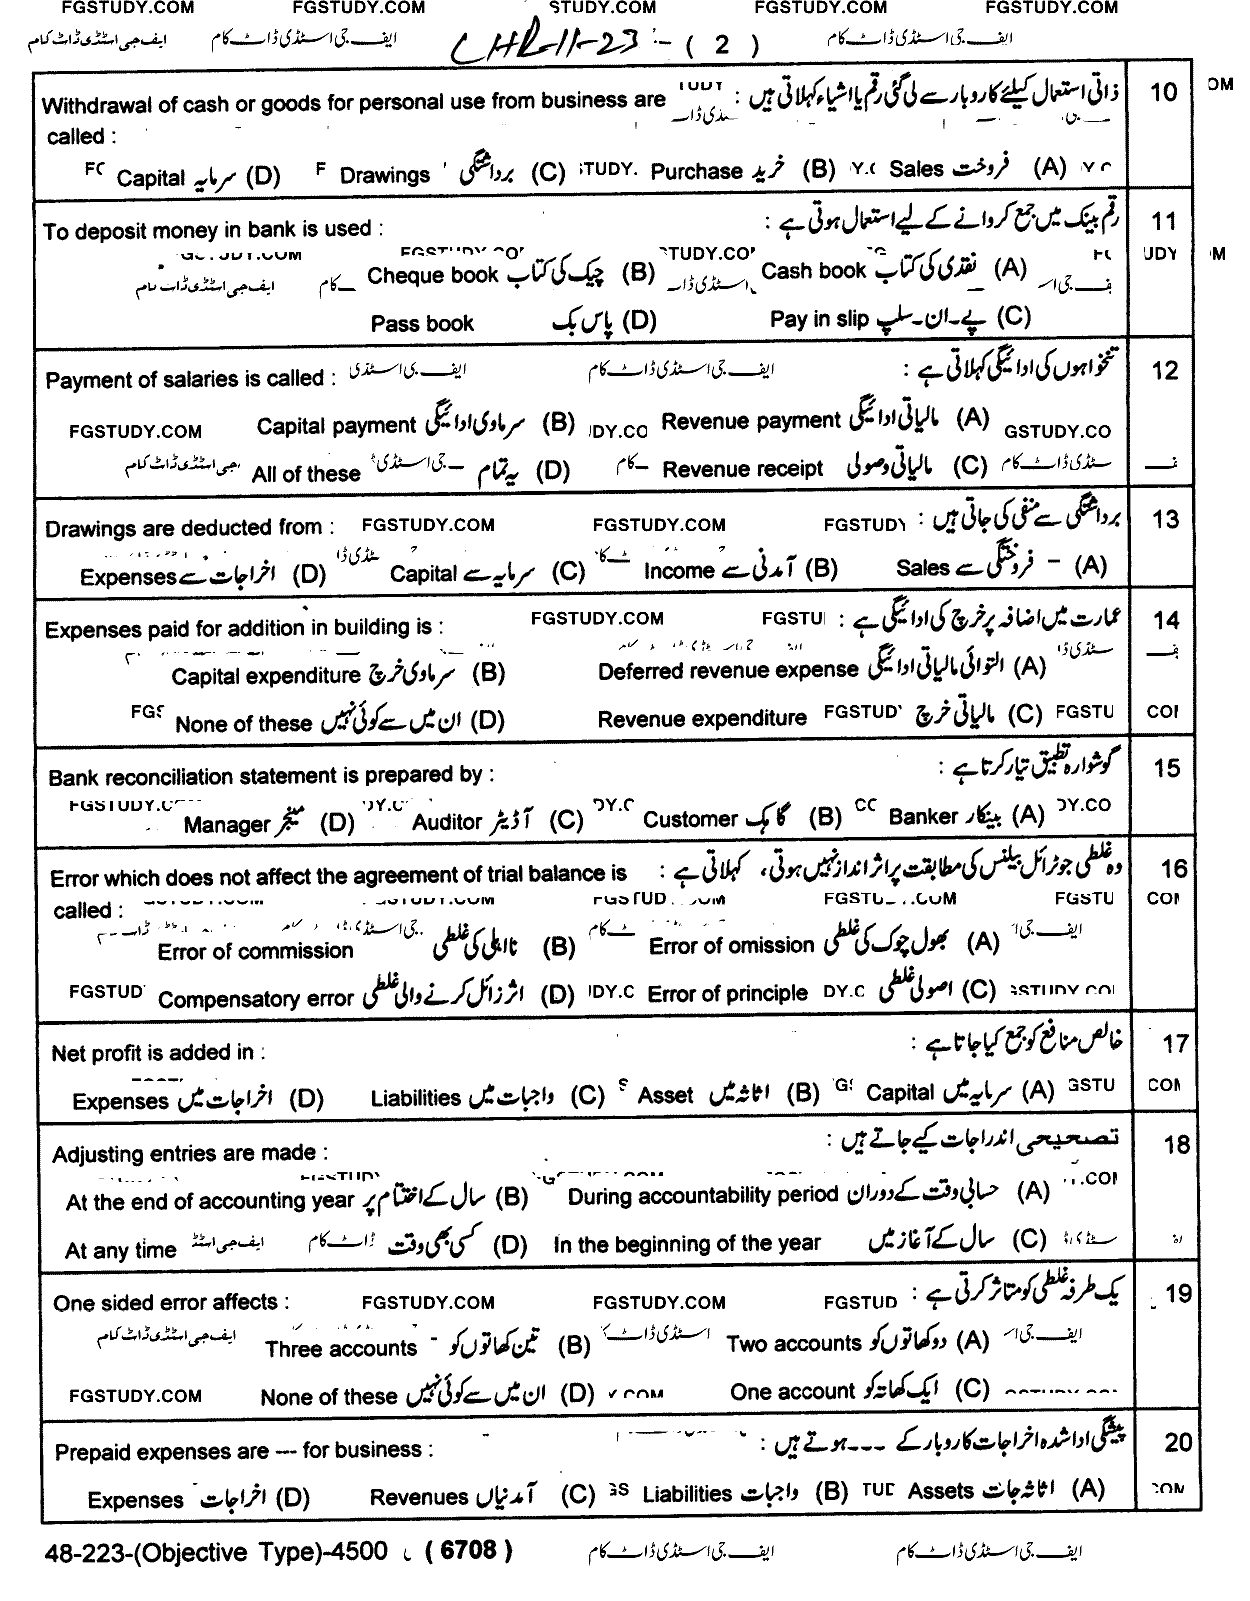 FGSTUDY.COM FGSTUDY.COM STUDY.COM FGSTUDY.COM FGSTUDY.COM
ایف جی اسٹڈی ڈاٹ کام ایف جی اسٹڈی ڈاٹ کام LHR-11-23 :- ( 2 ) ایف جی اسٹڈی ڈاٹ کام
10 ذاتی استعمال کیلئے کاروبار سے لی گئی رقم یا اشیاء کہلاتی ہیں :
Withdrawal of cash or goods for personal use from business are
called :
(A) فروخت Sales (B) خرید Purchase (C) برداشتگی Drawings (D) سرمایہ Capital
11 رقم بینک میں جمع کروانے کے لیے استعمال ہوتی ہے :
To deposit money in bank is used :
(A) نقدی کی کتاب Cash book (B) چیک کی کتاب Cheque book
(C) پے-ان-سلپ Pay in slip (D) پاس بک Pass book
12 تنخواہوں کی ادائیگی کہلاتی ہے :
Payment of salaries is called :
(A) مالیاتی ادائیگی Revenue payment (B) سرماوی ادائیگی Capital payment FGSTUDY.COM
(C) مالیاتی وصولی Revenue receipt (D) یہ تمام All of these
13 برداشتگی سے منفی کی جاتی ہیں :
Drawings are deducted from : FGSTUDY.COM FGSTUDY.COM FGSTUDY
(A) فروختگی سے Sales (B) آمدنی سے Income (C) سرمایہ سے Capital (D) اخراجات سے Expenses
14 عمارت میں اضافہ پر خرچ کی ادائیگی ہے :
Expenses paid for addition in building is : FGSTUDY.COM FGSTU
(A) التوائی مالیاتی ادائیگی Deferred revenue expense (B) سرماوی خرچ Capital expenditure
(C) مالیاتی خرچ Revenue expenditure (D) ان میں سے کوئی نہیں None of these
15 گوشوارہ تطبیق تیار کرتا ہے :
Bank reconciliation statement is prepared by :
(A) بینکار Banker (B) گاہک Customer (C) آڈیٹر Auditor (D) منیجر Manager
16 وہ غلطی جو ٹرائل بیلنس کی مطابقت پر اثر انداز نہیں ہوتی، کہلاتی ہے :
Error which does not affect the agreement of trial balance is
called :
(A) بھول چوک کی غلطی Error of omission (B) نااہلی کی غلطی Error of commission
(C) اصولی غلطی Error of principle (D) اثر زائل کرنے والی غلطی Compensatory error
17 خالص منافع کو جمع کیا جاتا ہے :
Net profit is added in :
(A) سرمایہ میں Capital (B) اثاثہ میں Asset (C) واجبات میں Liabilities (D) اخراجات میں Expenses
18 تصحیحی اندراجات کیے جاتے ہیں :
Adjusting entries are made :
(A) حسابی وقت کے دوران During accountability period (B) سال کے اختتام پر At the end of accounting year
(C) سال کے آغاز میں In the beginning of the year (D) کسی بھی وقت At any time
19 یک طرفہ غلطی کو متاثر کرتی ہے :
One sided error affects : FGSTUDY.COM FGSTUDY.COM FGSTUD
(A) دو کھاتوں کو Two accounts (B) تین کھاتوں کو Three accounts
(C) ایک کھاتہ کو One account (D) ان میں سے کوئی نہیں None of these FGSTUDY.COM
20 پیشگی ادا شدہ اخراجات کاروبار کے ---ہوتے ہیں :
Prepaid expenses are --- for business :
(A) اثاثہ جات Assets (B) واجبات Liabilities (C) آمدنیاں Revenues (D) اخراجات Expenses
48-223-(Objective Type)-4500 ( 6708 ) ایف جی اسٹڈی ڈاٹ کام ایف جی اسٹڈی ڈاٹ کام